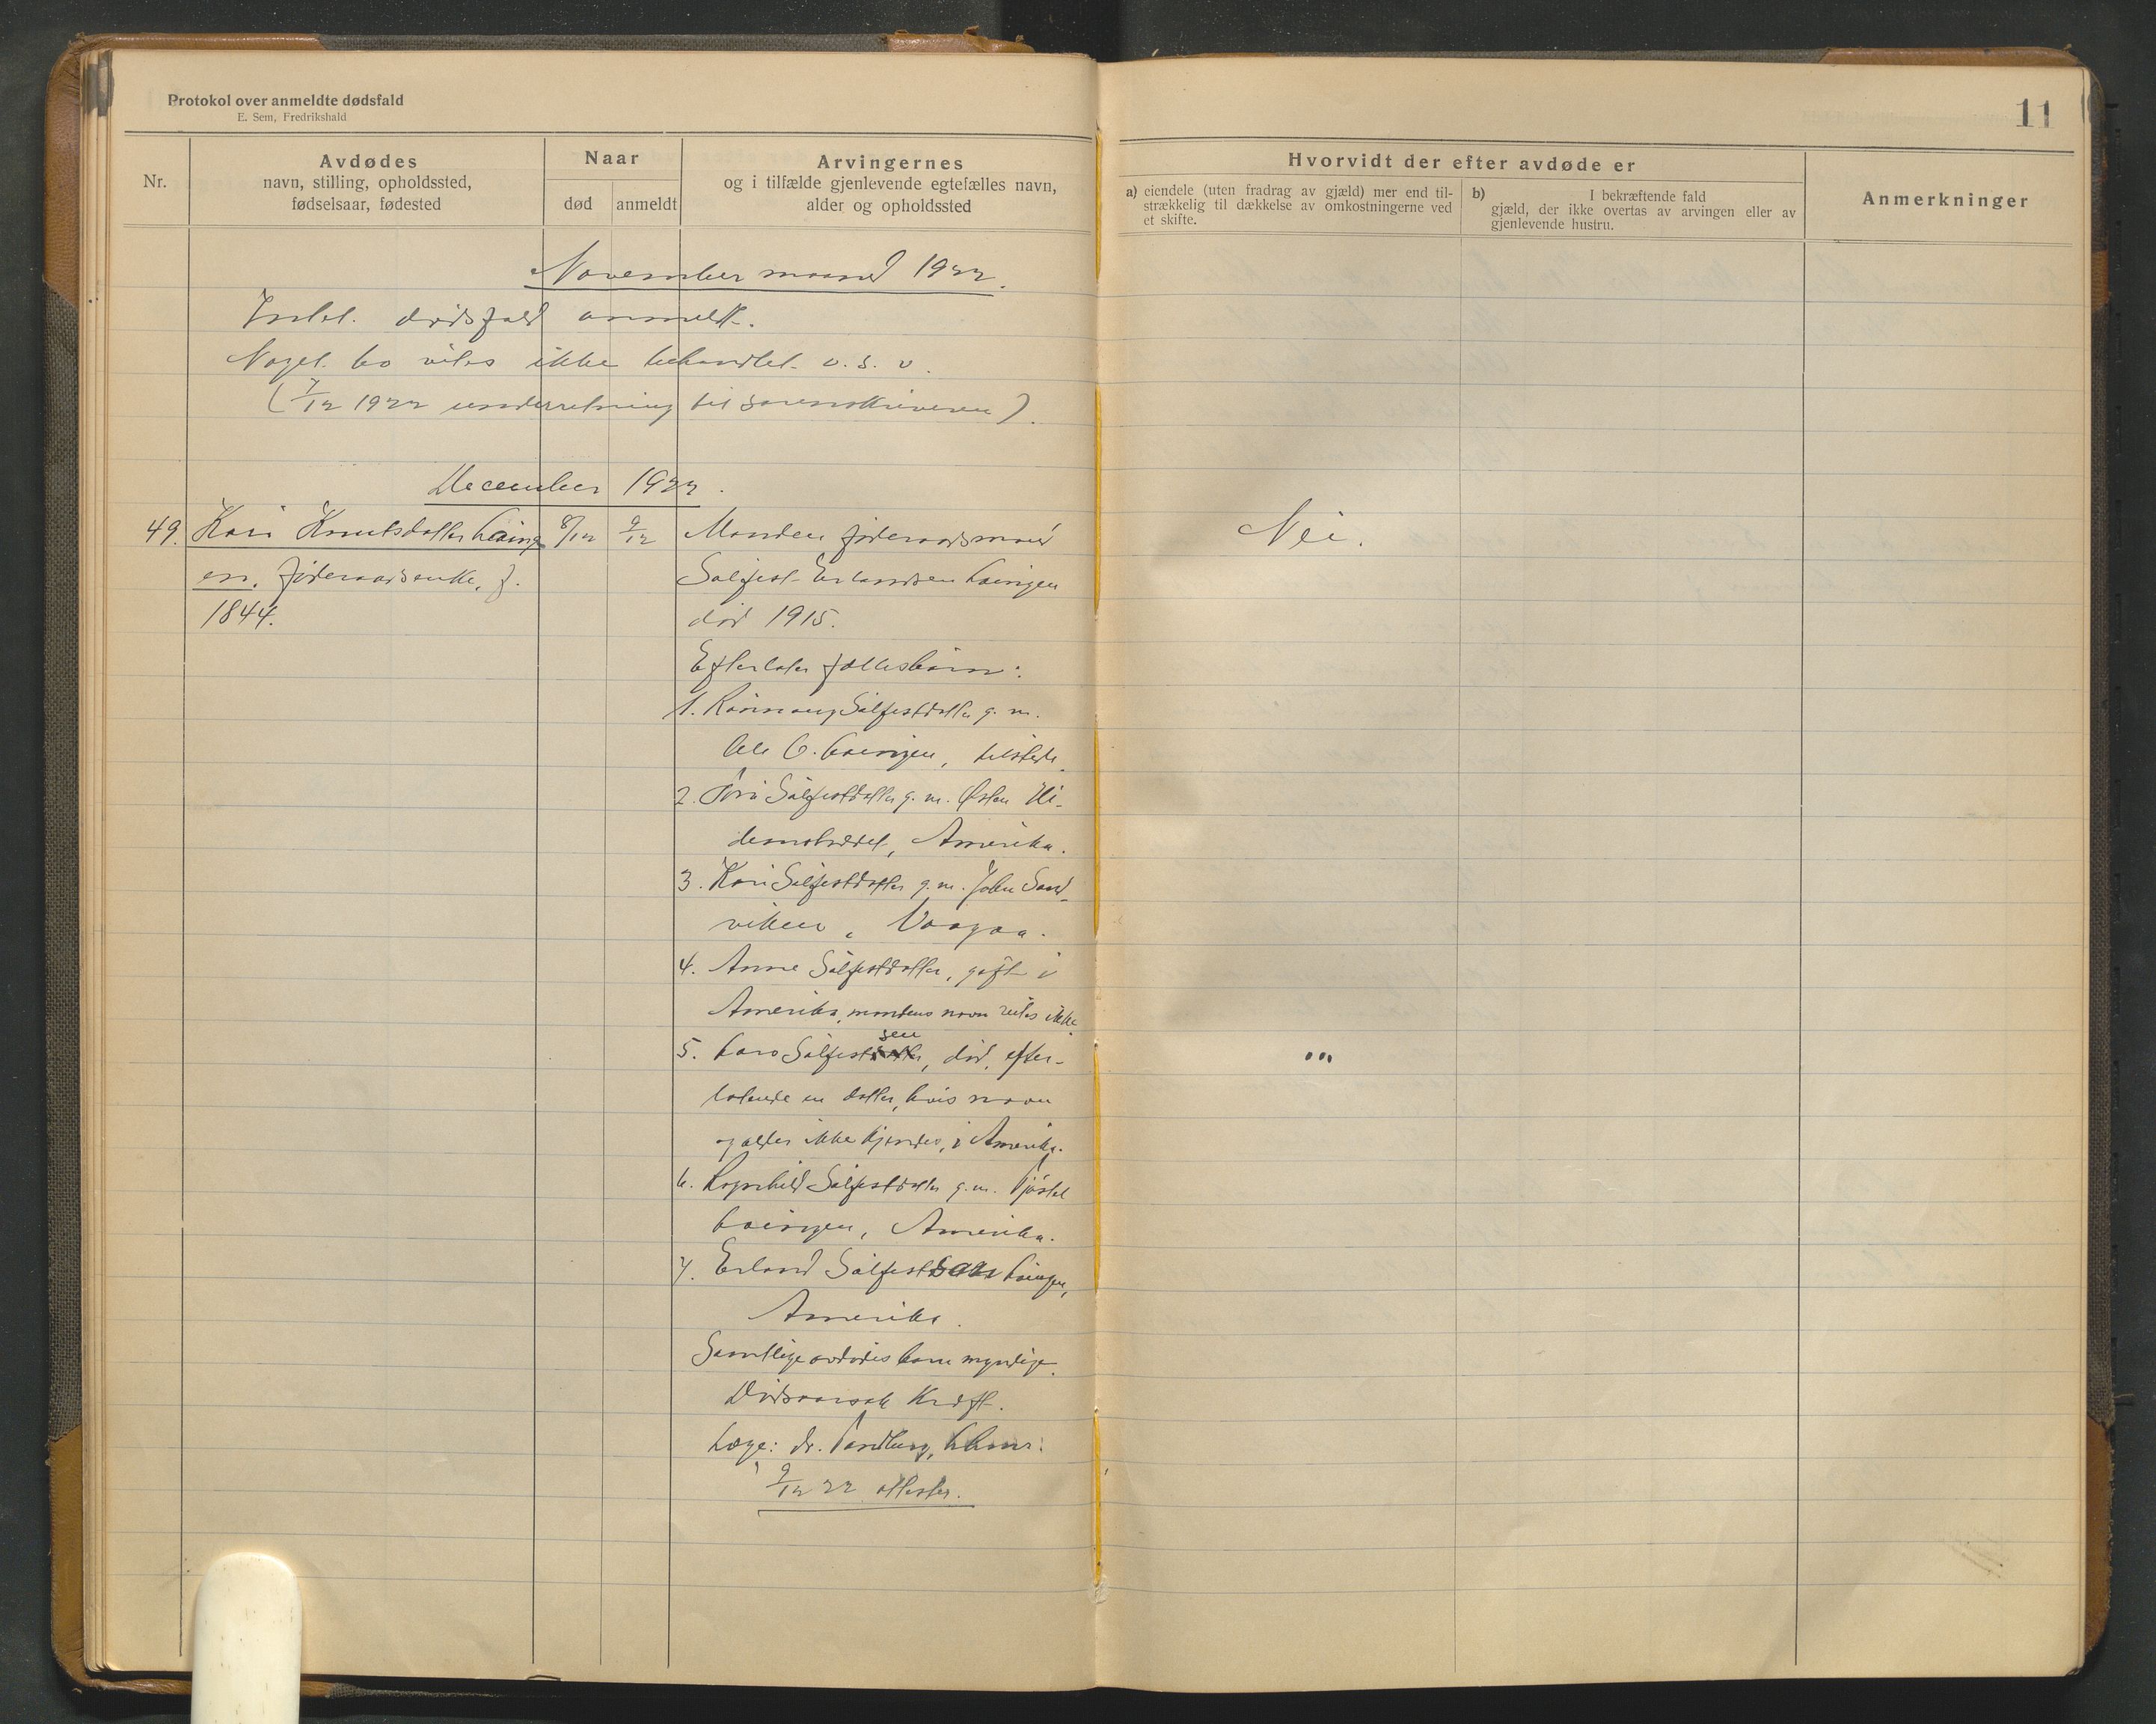 Protokol over anmeldte dødsfald
E. Sem, Fredrikshald
11
Nr.
Avdødes
navn, stilling, opholdssted,
fødselsaar, fødested
Naar
død
anmeldt
Arvingernes
og i tilfælde gjenlevende egtefælles navn,
alder og opholdssted
Hvorvidt der efter avdøde er
a) eiendele (uten fradrag av gjæld) mer end til-
strækkelig til dækkelse av omkostningerne ved
et skifte.
b) I bekræftende fald
gjæld, der ikke overtas av arvingen eller av
gjenlevende hustru.
Anmerkninger
November maaned 1922.
Intet dødsfald anmeldt.
Noget bo vites ikke behandlet o. s. v.
(7/12 1922 underretning til sorenskriveren).
December 1922.
49. Kari Knutsdatter Loeing 8/12 9/12 Manden føderaadsmand Nei.
en. føderaadsenke. f. Salfest Erlandsen Loeingen
1844. død 1915.
Efterlater fællesbarn:
1. Rönnaug Sålfestdatter g. m.
Ole O. Loeingen, tilstede.
2. Töri Sålfestdatter g. m. Østen
Amerika.
3. Kari Sålfestdatter g. m. John Sand-
viken, Vaagaa.
4. Anne Sålfestdatter, gift i
Amerika, mandens navn vites ikke.
5. Lars Sålfestsen, død, efter- "
latende en datter, hvis navn
og alder ikke kjendes, i Amerika.
6. Ragnhild Sålfestdatter g. m. Tjöstel
Loeingen, Amerika.
7. Erland Sålfestsen Loeingen,
Amerika.
Samtlige avdødes barn myndige.
Dødsaarsak Kræft.
Læge: dr. Tandberg,
9/12 22 attester.